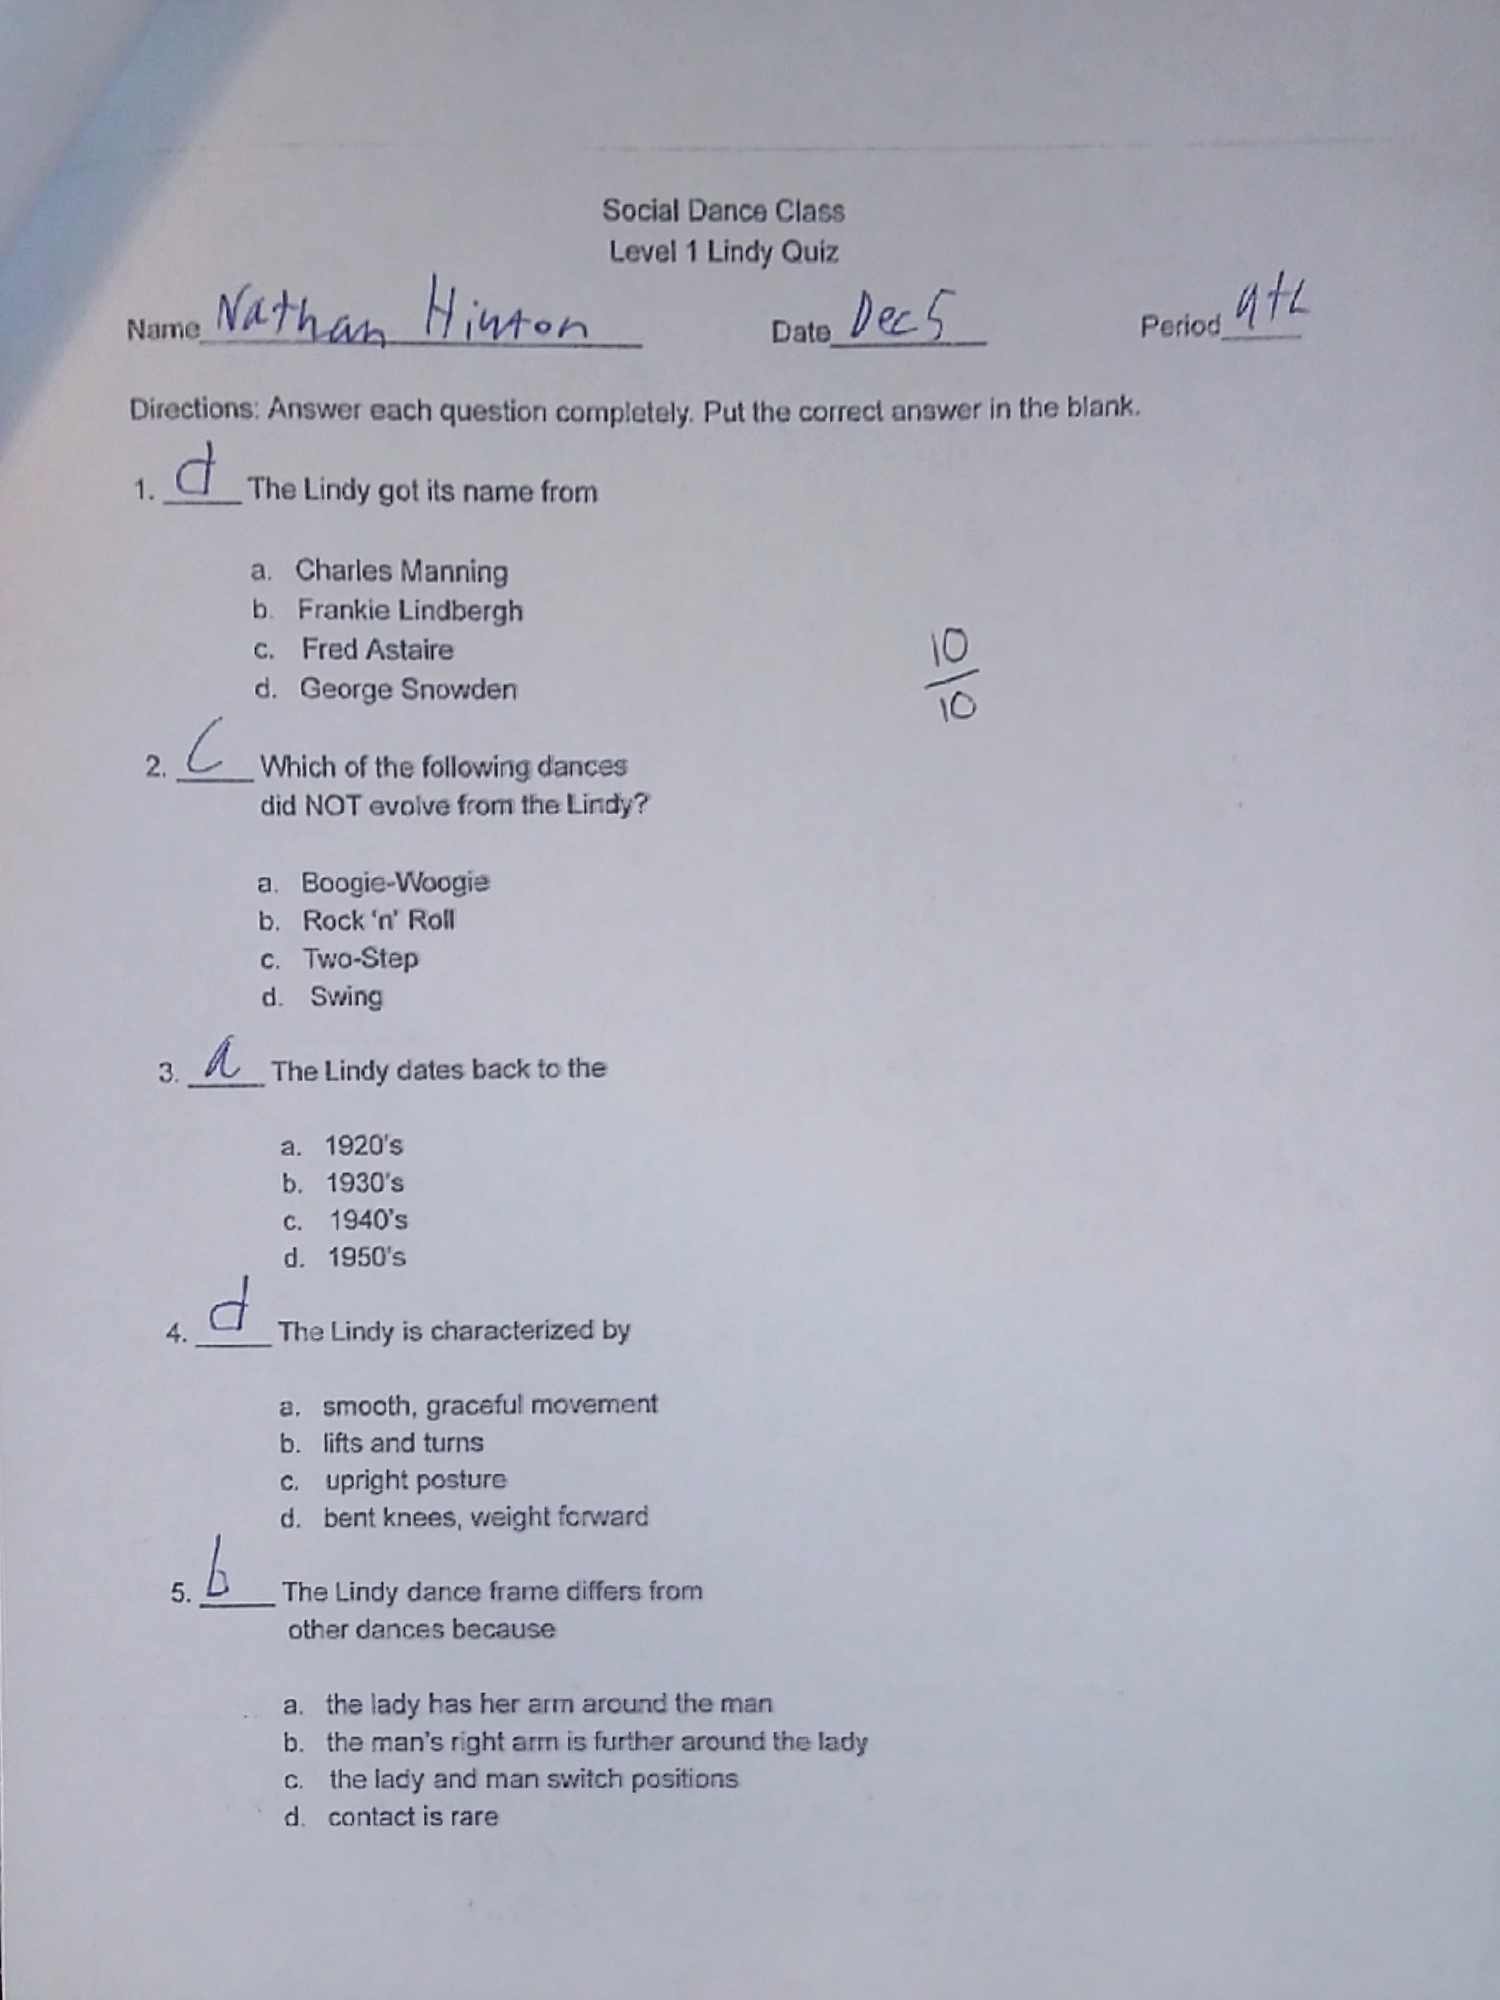 Social Dance Class
Level 1 Lindy Quiz
Name Nathan Hinton Date Dec 5 Period 9th
Directions: Answer each question completely. Put the correct answer in the blank.
1. d The Lindy got its name from
a. Charles Manning
b. Frankie Lindbergh
c. Fred Astaire
d. George Snowden
10
10
2. C Which of the following dances
did NOT evolve from the Lindy?
a. Boogie-Woogie
b. Rock 'n' Roll
c. Two-Step
d. Swing
3. a The Lindy dates back to the
a. 1920's
b. 1930's
c. 1940's
d. 1950's
4. d The Lindy is characterized by
a. smooth, graceful movement
b. lifts and turns
c. upright posture
d. bent knees, weight forward
5. b The Lindy dance frame differs from
other dances because
a. the lady has her arm around the man
b. the man's right arm is further around the lady
c. the lady and man switch positions
d. contact is rare